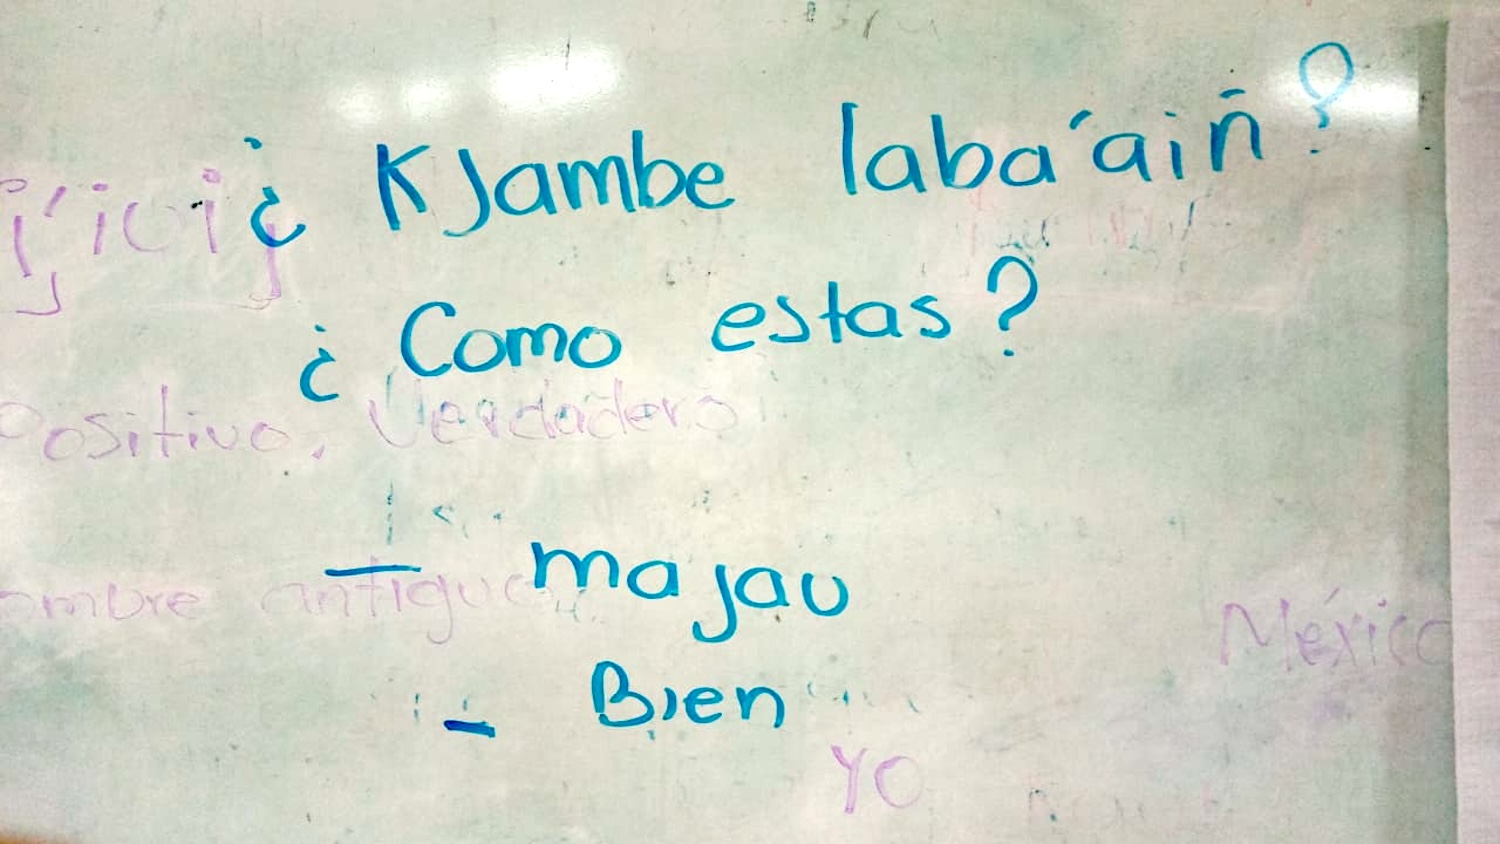 ¿ KJambe laba'aiñ?
¿ Como estas?
Positivo, Verdadero
— majau
ombre antiguo
México
- Bien
yo